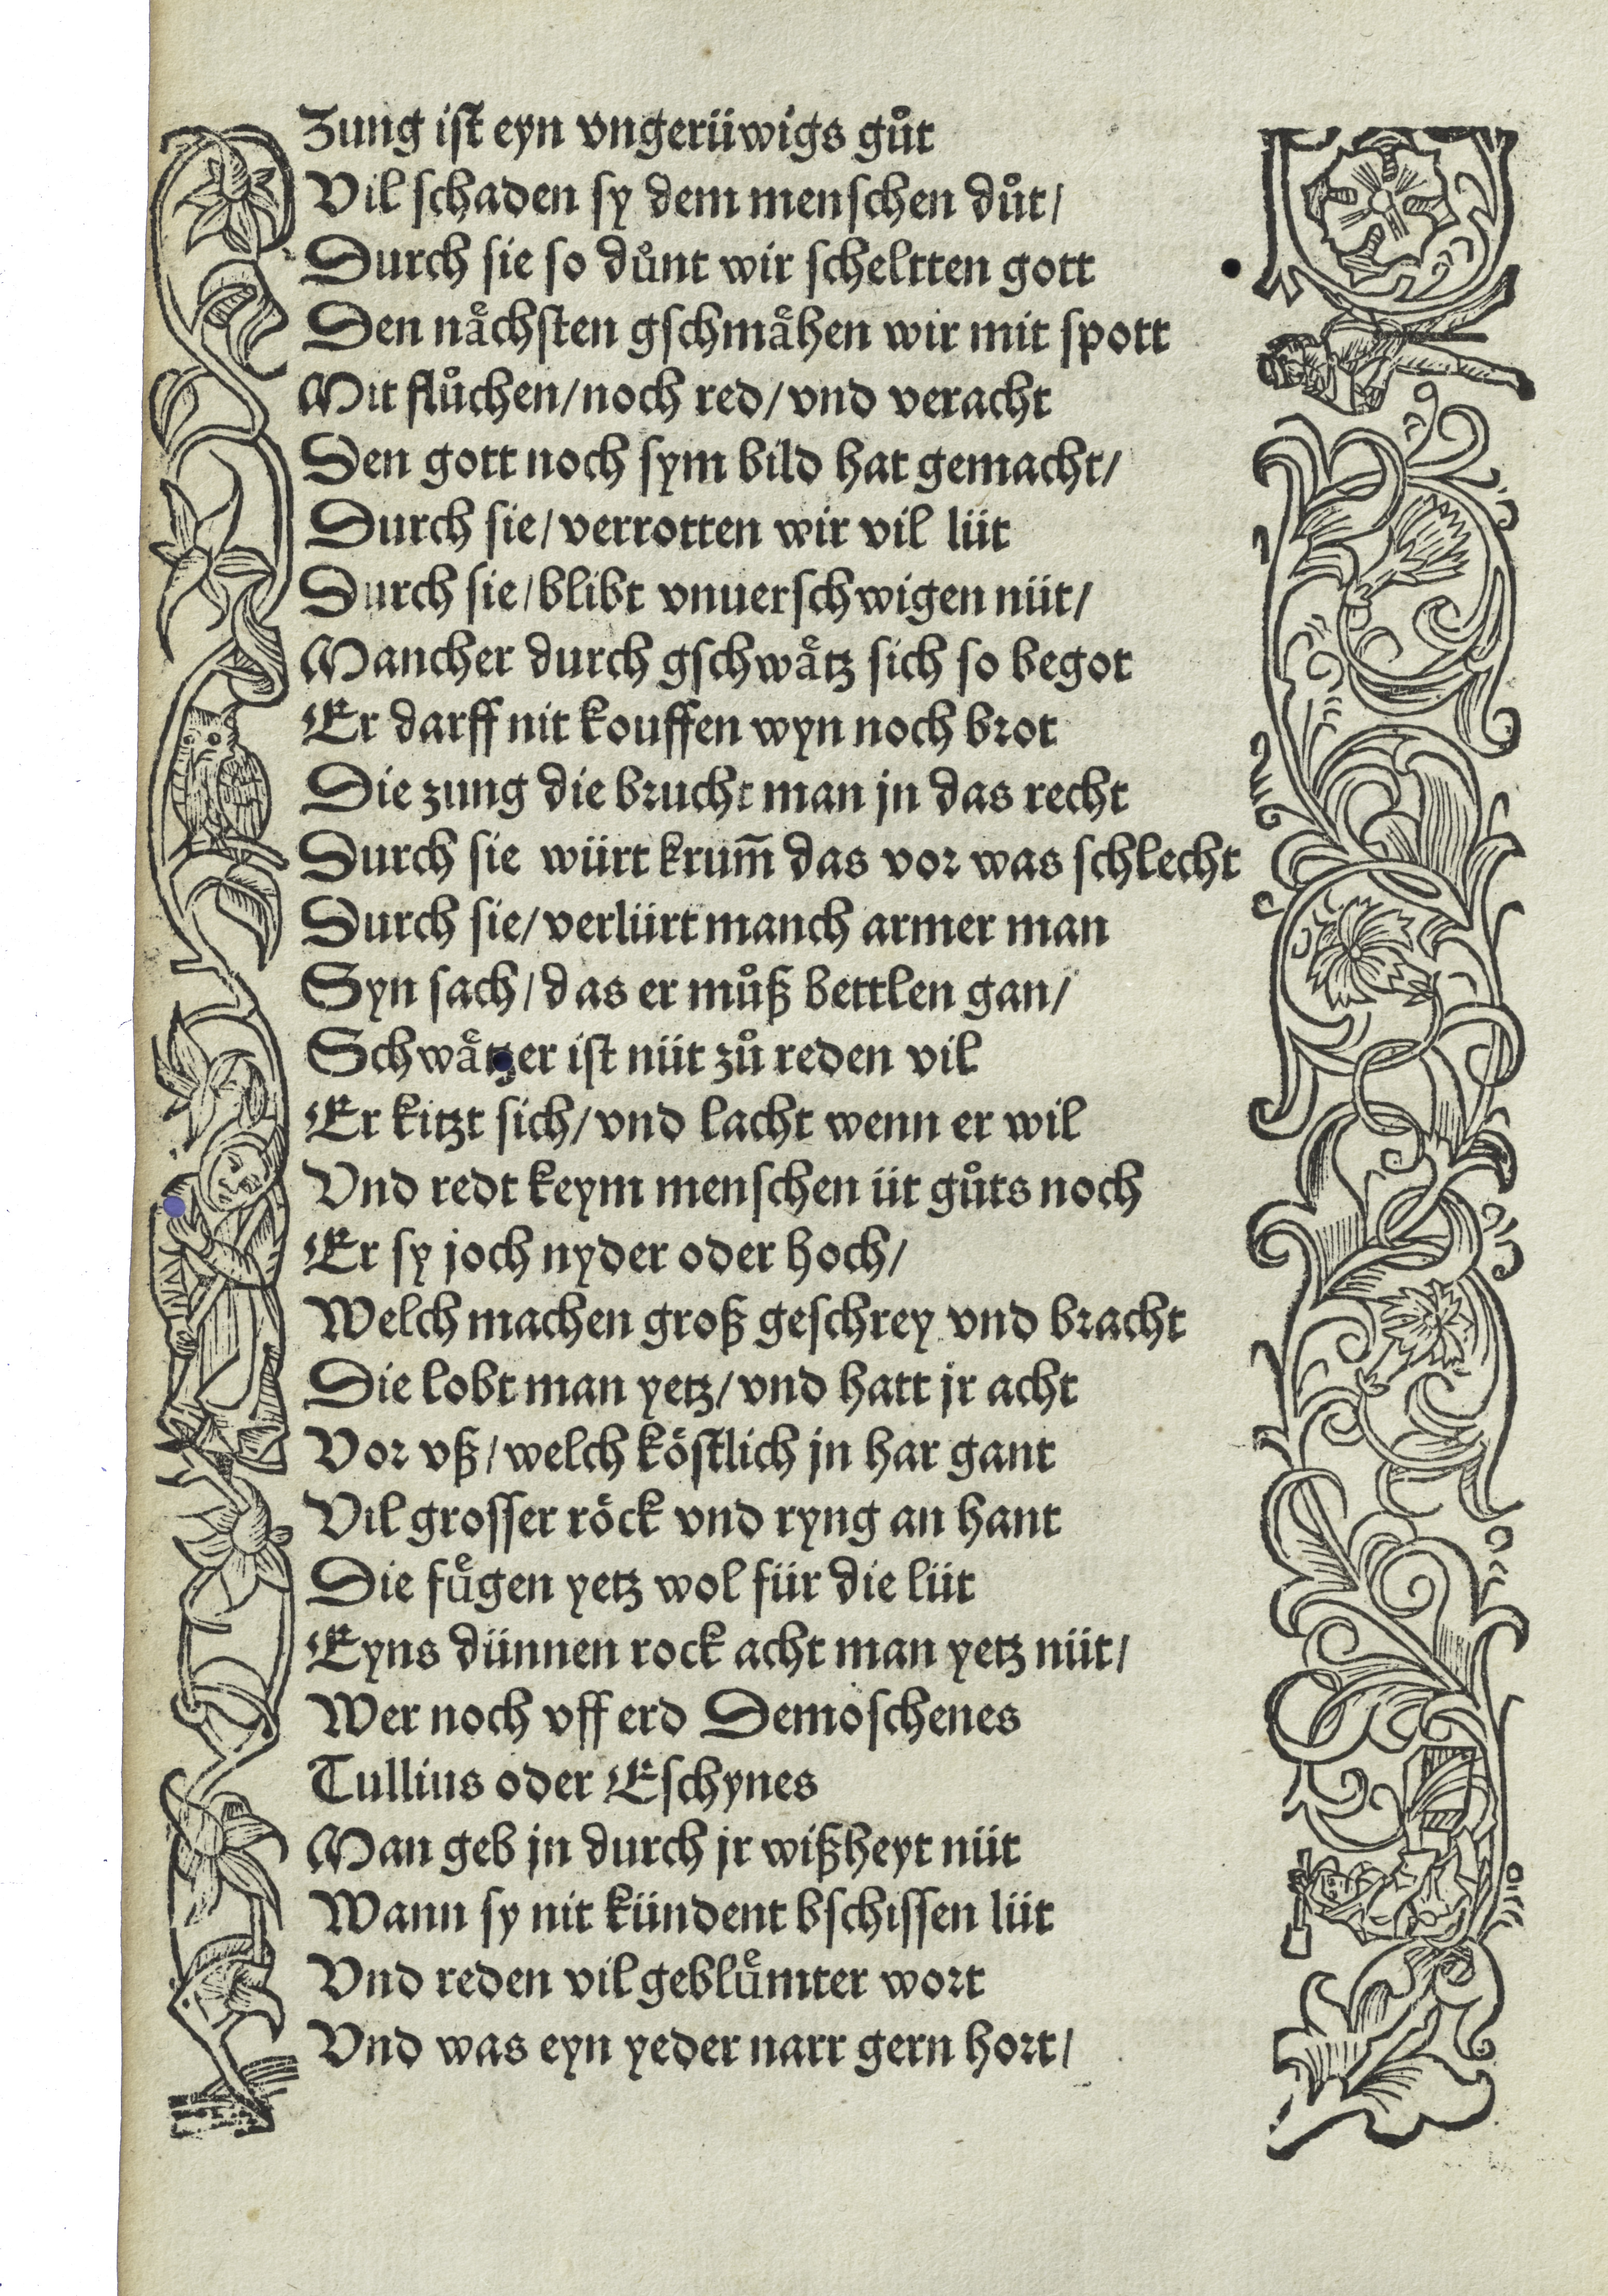 Zung iſt eyn vngerüwigs gůt
Vil ſchaden ſy dem menſchen důt/
Durch ſie ſo důnt wir ſcheltten gott
Den naͤchſten gſchmaͤhen wir mit ſpott
Mit flůchen/noch red/vnd veracht
Den gott noch ſym bild hat gemacht/
Durch ſie/verrotten wir vil lüt
Durch ſie/blibt vnuerſchwigen nüt/
Mancher durch gſchwaͤtz ſich ſo begot
Er darff nit kouffen wyn noch brot
Die zung die brucht man jn das recht
Durch ſie würt krum̄ das vor was ſchlecht
Durch ſie/verlürt manch armer man
Syn ſach/das er můß bettlen gan/
Schwaͤtzer iſt nüt zů reden vil
Er kitzt ſich/vnd lacht wenn er wil
Vnd redt keym menſchen üt gůts noch
Er ſy joch nyder oder hoch/
Welch machen groß geſchrey vnd bracht
Die lobt man yetz/vnd hatt jr acht
Vor vß/welch koͤſtlich jn har gant
Vil groſſer roͤck vnd ryng an hant
Die fuͤgen yetz wol für die lüt
Eyns dünnen rock acht man yetz nüt/
Wer noch vff erd Demoſchenes
Tullius oder Eſchynes
Man geb jn durch jr wißheyt nüt
Wann ſy nit kündent bſchiſſen lüt
Vnd reden vil gebluͤmter wort
Vnd was eyn yeder narr gern hort/